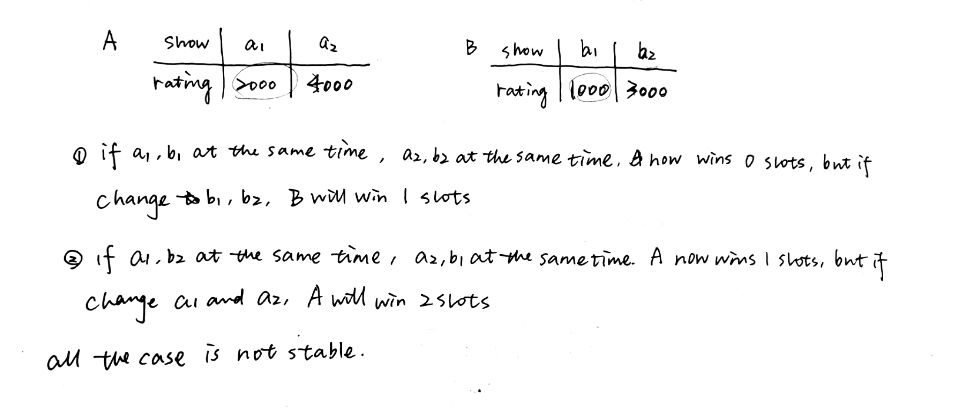 A show a1 a2 B show b1 b2
rating 2000 4000 rating 1000 3000
① if a1, b1 at the same time, a2, b2 at the same time. now wins 0 slots, but if
change b1, b2, B will win 1 slots
② if a1, b2 at the same time, a2, b1 at the same time. A now wins 1 slots, but if
change a1 and a2, A will win 2 slots
all the case is not stable.